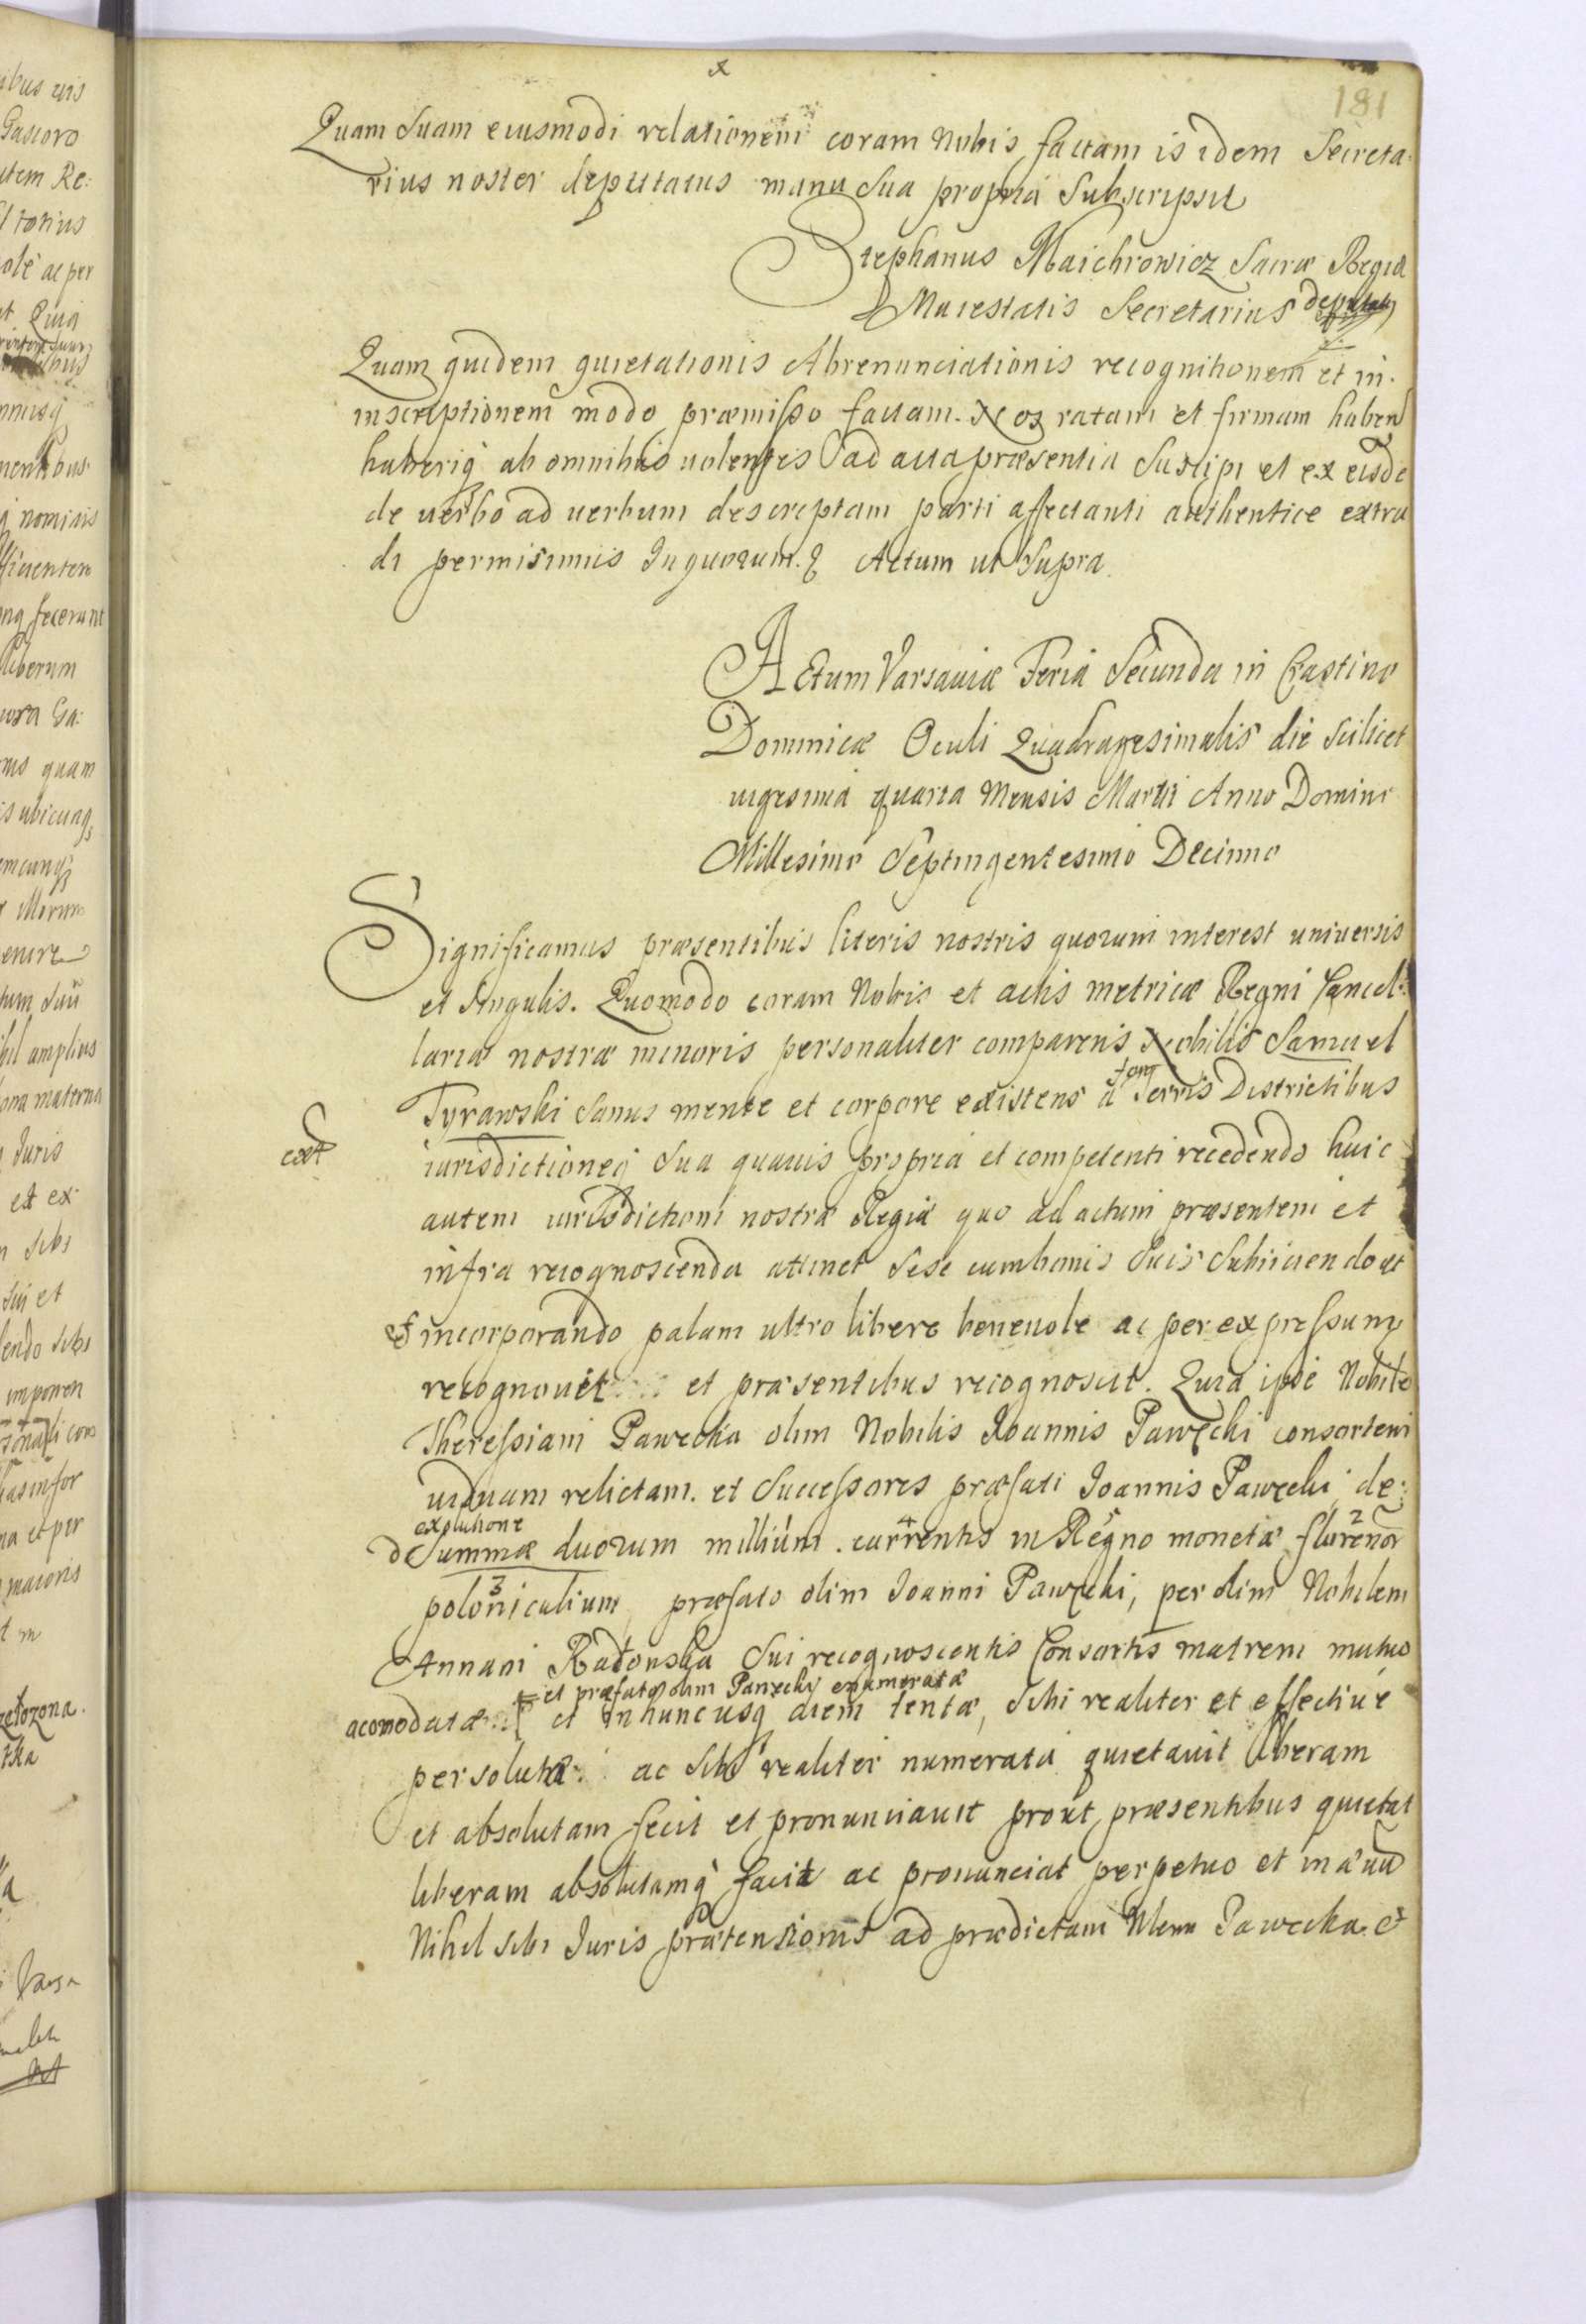 181
Quam Suam eiusmodi relationem coram Nobis factam is idem Secreta:
rius noster deputatus manu sua propria Subscripsit
Stephanus Maichrowicz Sacræ Regiæ
Maiestatis Secretarius
Quam quidem quietationis Abrenunciationis recognitionem et in:
inscriptionem modo præmisso factam. Nos ratam et firmam haben
haberiq ab omnibus uolentes ad acta præsentia Suscipi et ex eisde
de uerbo ad uerbum descriptam parti affectanti authentice extra
di permisimus In quorum. Actum ut Supra.
Actum Varsauiæ Feria Secunda in Crastino
Dominicæ Oculi Quadragesimalis die scilicet
uigesima quarta Mensis Martii Anno Domini
Millesimo Septingentesimo Decimo
Significamus præsentibus literis nostris quorum interest universis
et singulis. Quomodo coram Nobis et actis metricæ Regni Cancel:
lariæ nostræ minoris personaliter comparens Nobilis Samuel
Tyrawski Sanus mente et corpore existens a Terris Districtibus
iurisdictioneq Sua quauis propria et competenti recedendo huic
autem iurisdictioni nostræ Regiæ quo ad actum præsentem et
infra recognoscenda attinet Sese cum bonis Suis Subiiciendo et
et incorporando palam ultro libere beneuole ac per expressum
recognouit et præsentibus recognoscit. Quia ipse Nobile
Theressiam Pawęcka olim Nobilis Joannis Pawęcki consortem
uiduam relictam. et Successores præfati Joannis Pawęcki de:
exolutione
d Summæ duorum millium. 4 currentis in Regno monetæ 2 florenor
3 polonicalium præfato olim Joanni Pawęcki, per olim Nobilem
Annam Radonska Sui recognoscentis Consortis matrem mutuo
et præfato olim Pawęcki enumeratæ
acomodatæ. et in huncusq diem tentæ, Sibi realiter et effectiue
persolutæ. ac Sibi realiter numerata quietauit liberam
et absolutam fecit et pronunciauit prout præsentibus quietat
liberam absolutamq facit ac pronunciat perpetuo et in æuũ
Nihil sibi Juris prætensionis ad prædictam Nlem Pawecka et